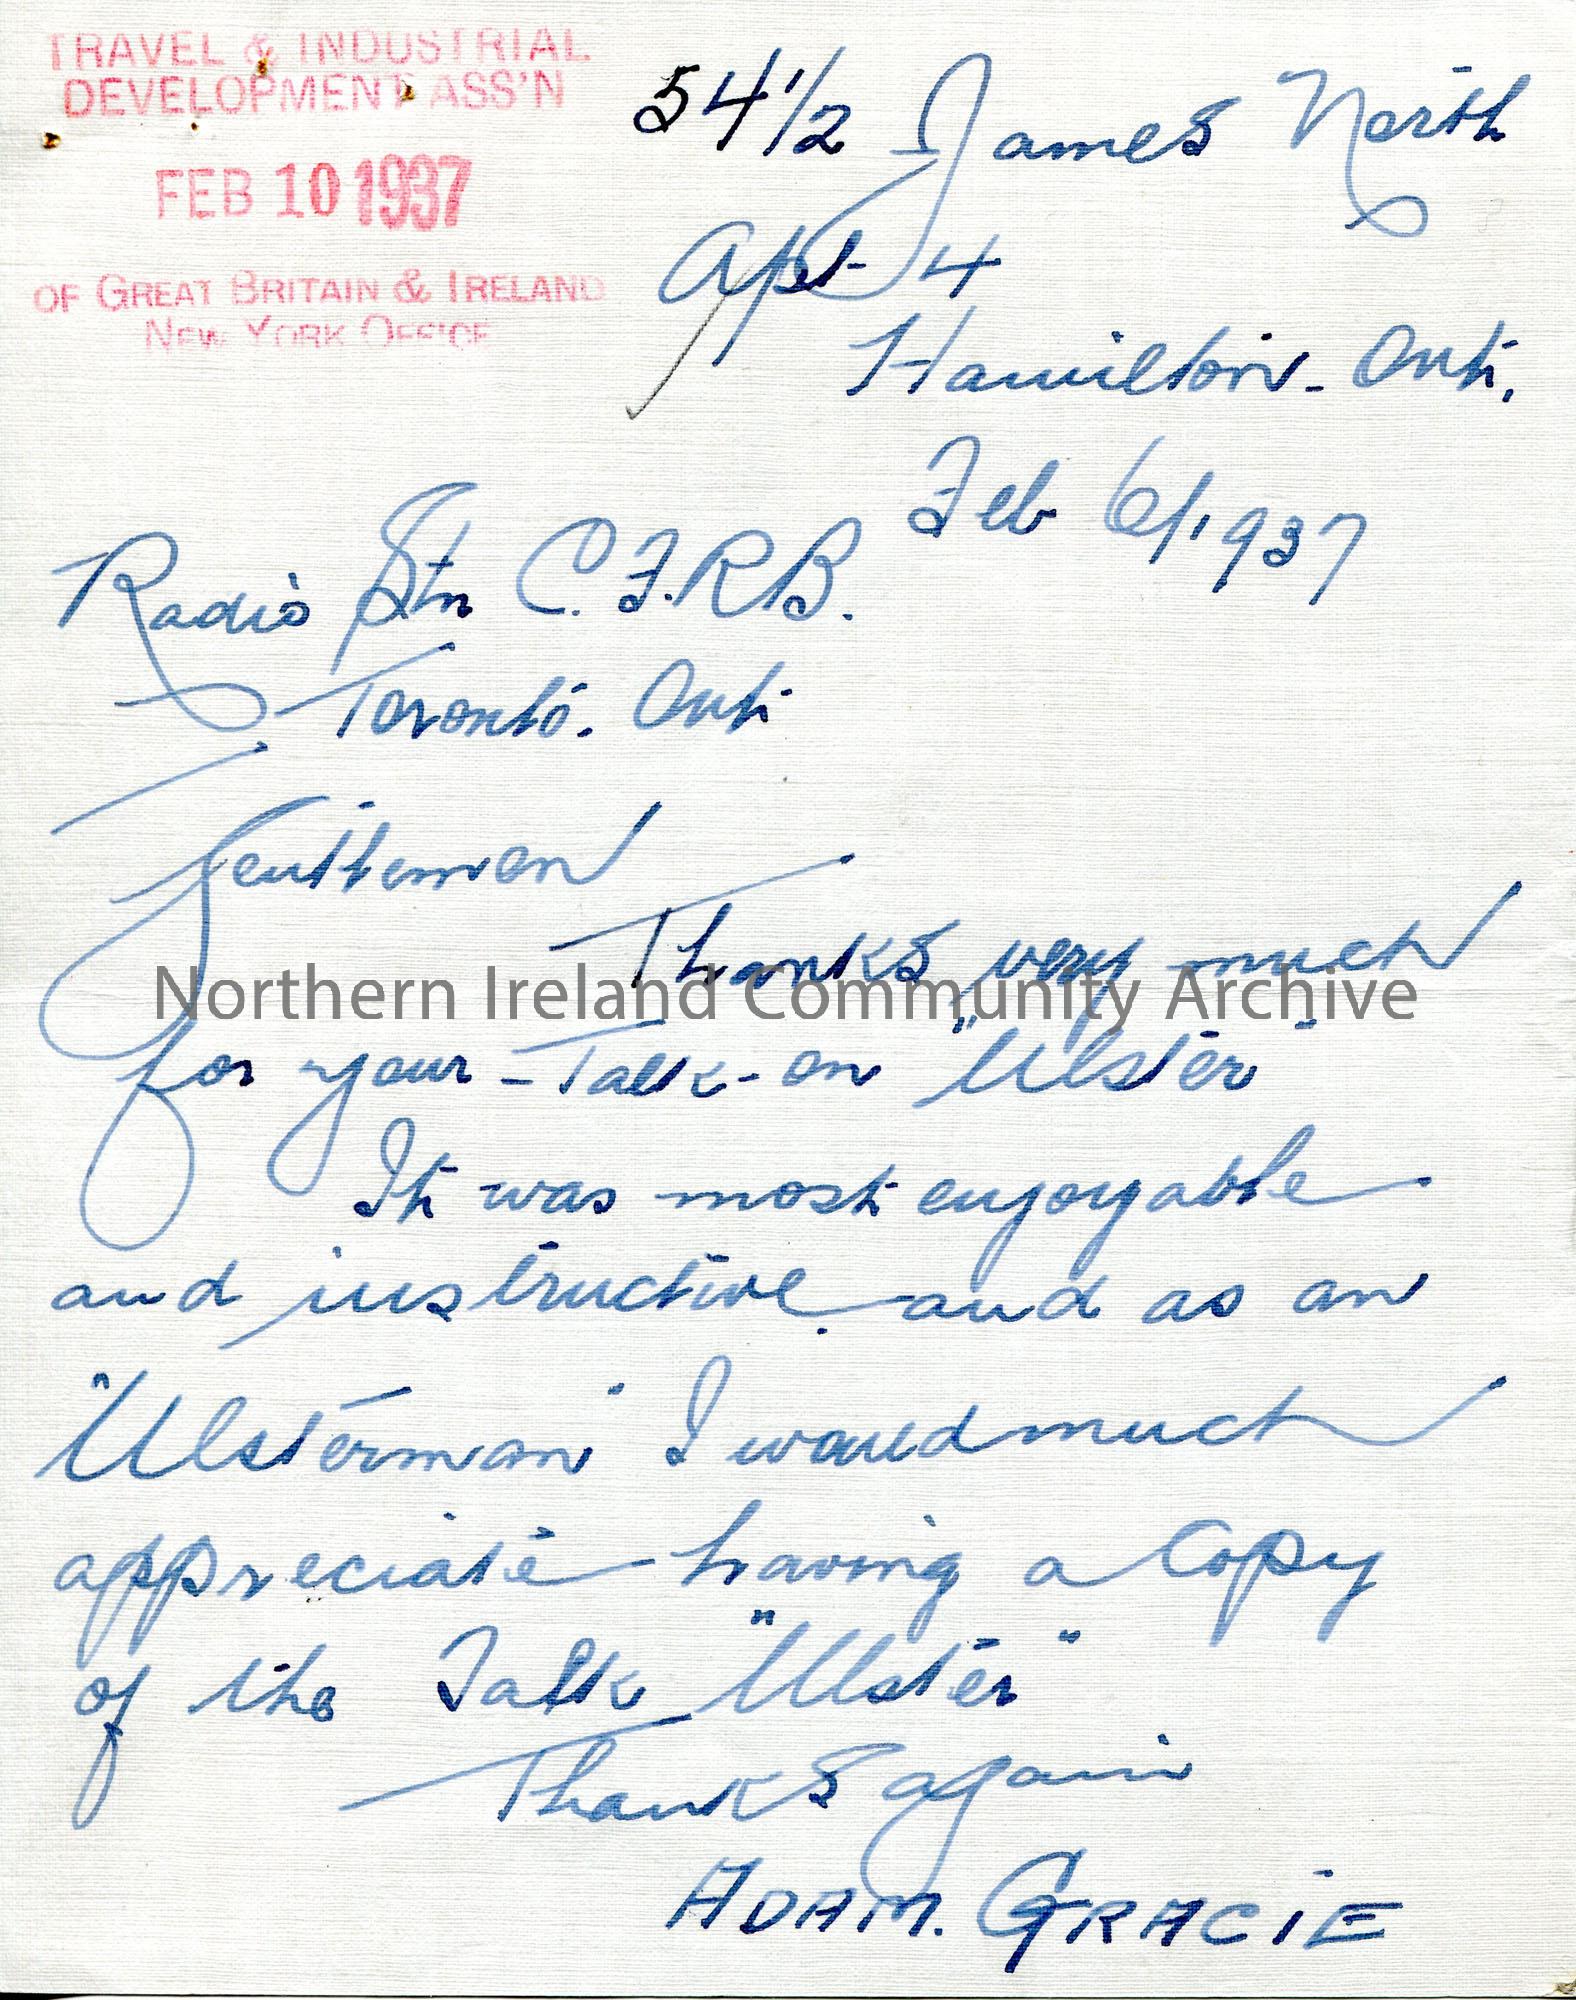 TRAVEL & INDUSTRIAL
DEVELOPMENT ASS'N
FEB 10 1937
OF GREAT BRITAIN & IRELAND
NEW YORK OFFICE
54 1/2 James North
Apt 4
Hamilton - Ont.
Feb 6/1937
Radio Stn C.F.R.B.
Toronto. Ont
Gentlemen
Thanks very much
for your - Talk - on "Ulster"
It was most enjoyable
and instructive. and as an
"Ulsterman" I would much
appreciate having a Copy
of the Talk "Ulster"
Thanks again
ADAM. GRACIE
Northern Ireland Community Archive